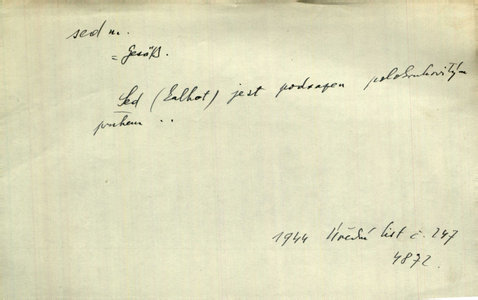 sed m.
= Gesäß.
Sed (Kalhot) jest podsazen polokruhovitým
pruhem ..
1944 Úřední list č. 247
4872.